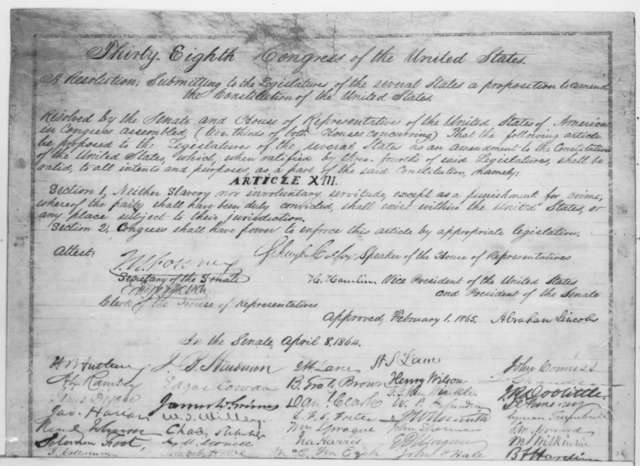 Thirty-Eighth Congress of the United States.
A Resolution; Submitting to the Legislatures of the several States a proposition to amend
the Constitution of the United States.
Resolved by the Senate and House of Representatives of the United States of America
in Congress assembled, (two thirds of both Houses concurring) That the following article
be proposed to the Legislatures of the several States as an amendment to the Constitution
of the United States, which, when ratified by three fourths of said legislatures, shall be
valid, to all intents and purposes, as a part of the said Constitution, namely:
ARTICLE XIII.
Section 1, Neither slavery nor involuntary servitude, except as a punishment for crime,
whereof the party shall have been duly convicted, shall exist within the United States, or
any place subject to their jurisdiction.
Section 2, Congress shall have power to enforce this article by appropriate legislation.
Attest:
Schuyler Colfax Speaker of the House of Representatives
J. W. Forney
Secretary of the Senate
H. Hamlin Vice President of the United States
and President of the Senate
Clerk of the House of Representatives
Approved, February 1, 1865. Abraham Lincoln
In the Senate, April 8, 1864.
J. B. Henderson
H. S. Lane
John Conness
Edgar Cowan
B. Gratz Brown
Henry Wilson
J. R. Doolittle
James W. Grimes
Dan'l Clark
Jas. Harlan
W. T. Willey
Lyman Trumbull
Chas. Sumner
Wm Sprague
John Sherman
Ira Harris
M. Wilkinson
Solomon Foot
John P. Hale